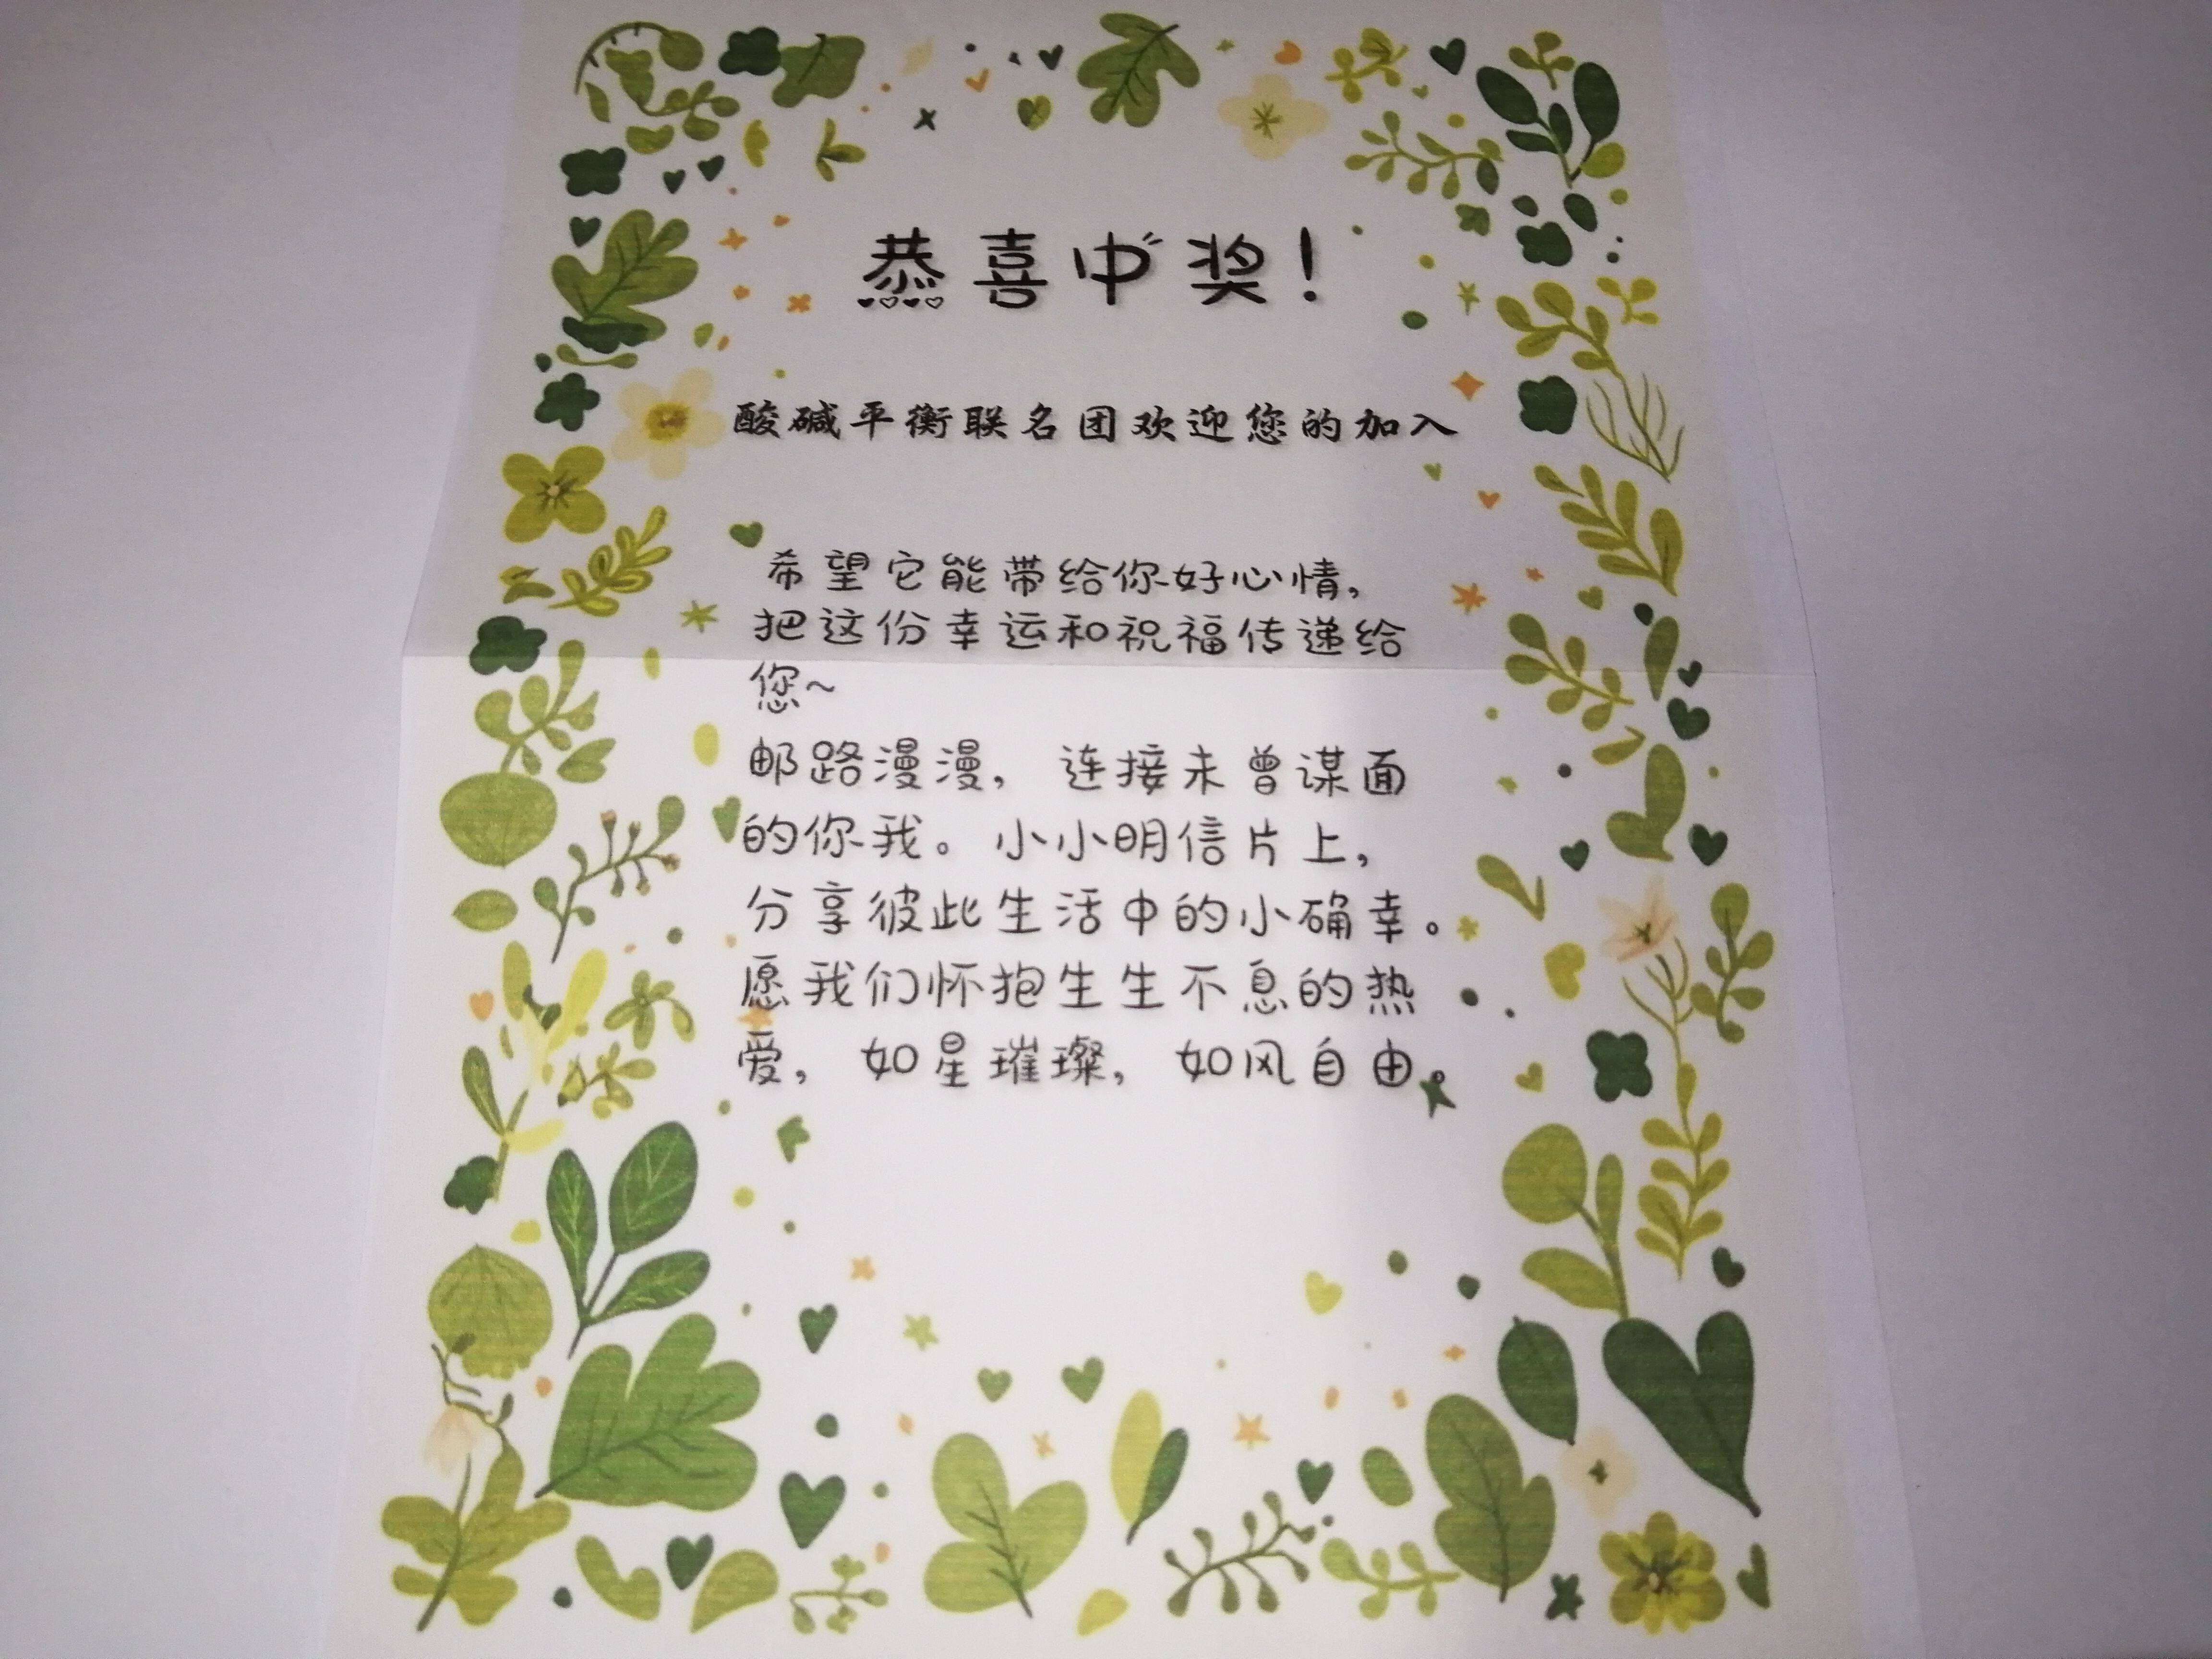 恭喜中奖！
酸碱平衡联名团欢迎您的加入
希望它能带给你好心情，
把这份幸运和祝福传递给
您~
邮路漫漫，连接未曾谋面
的你我。小小明信片上，
分享彼此生活中的小确幸。
愿我们怀抱生生不息的热
爱，如星璀璨，如风自由。